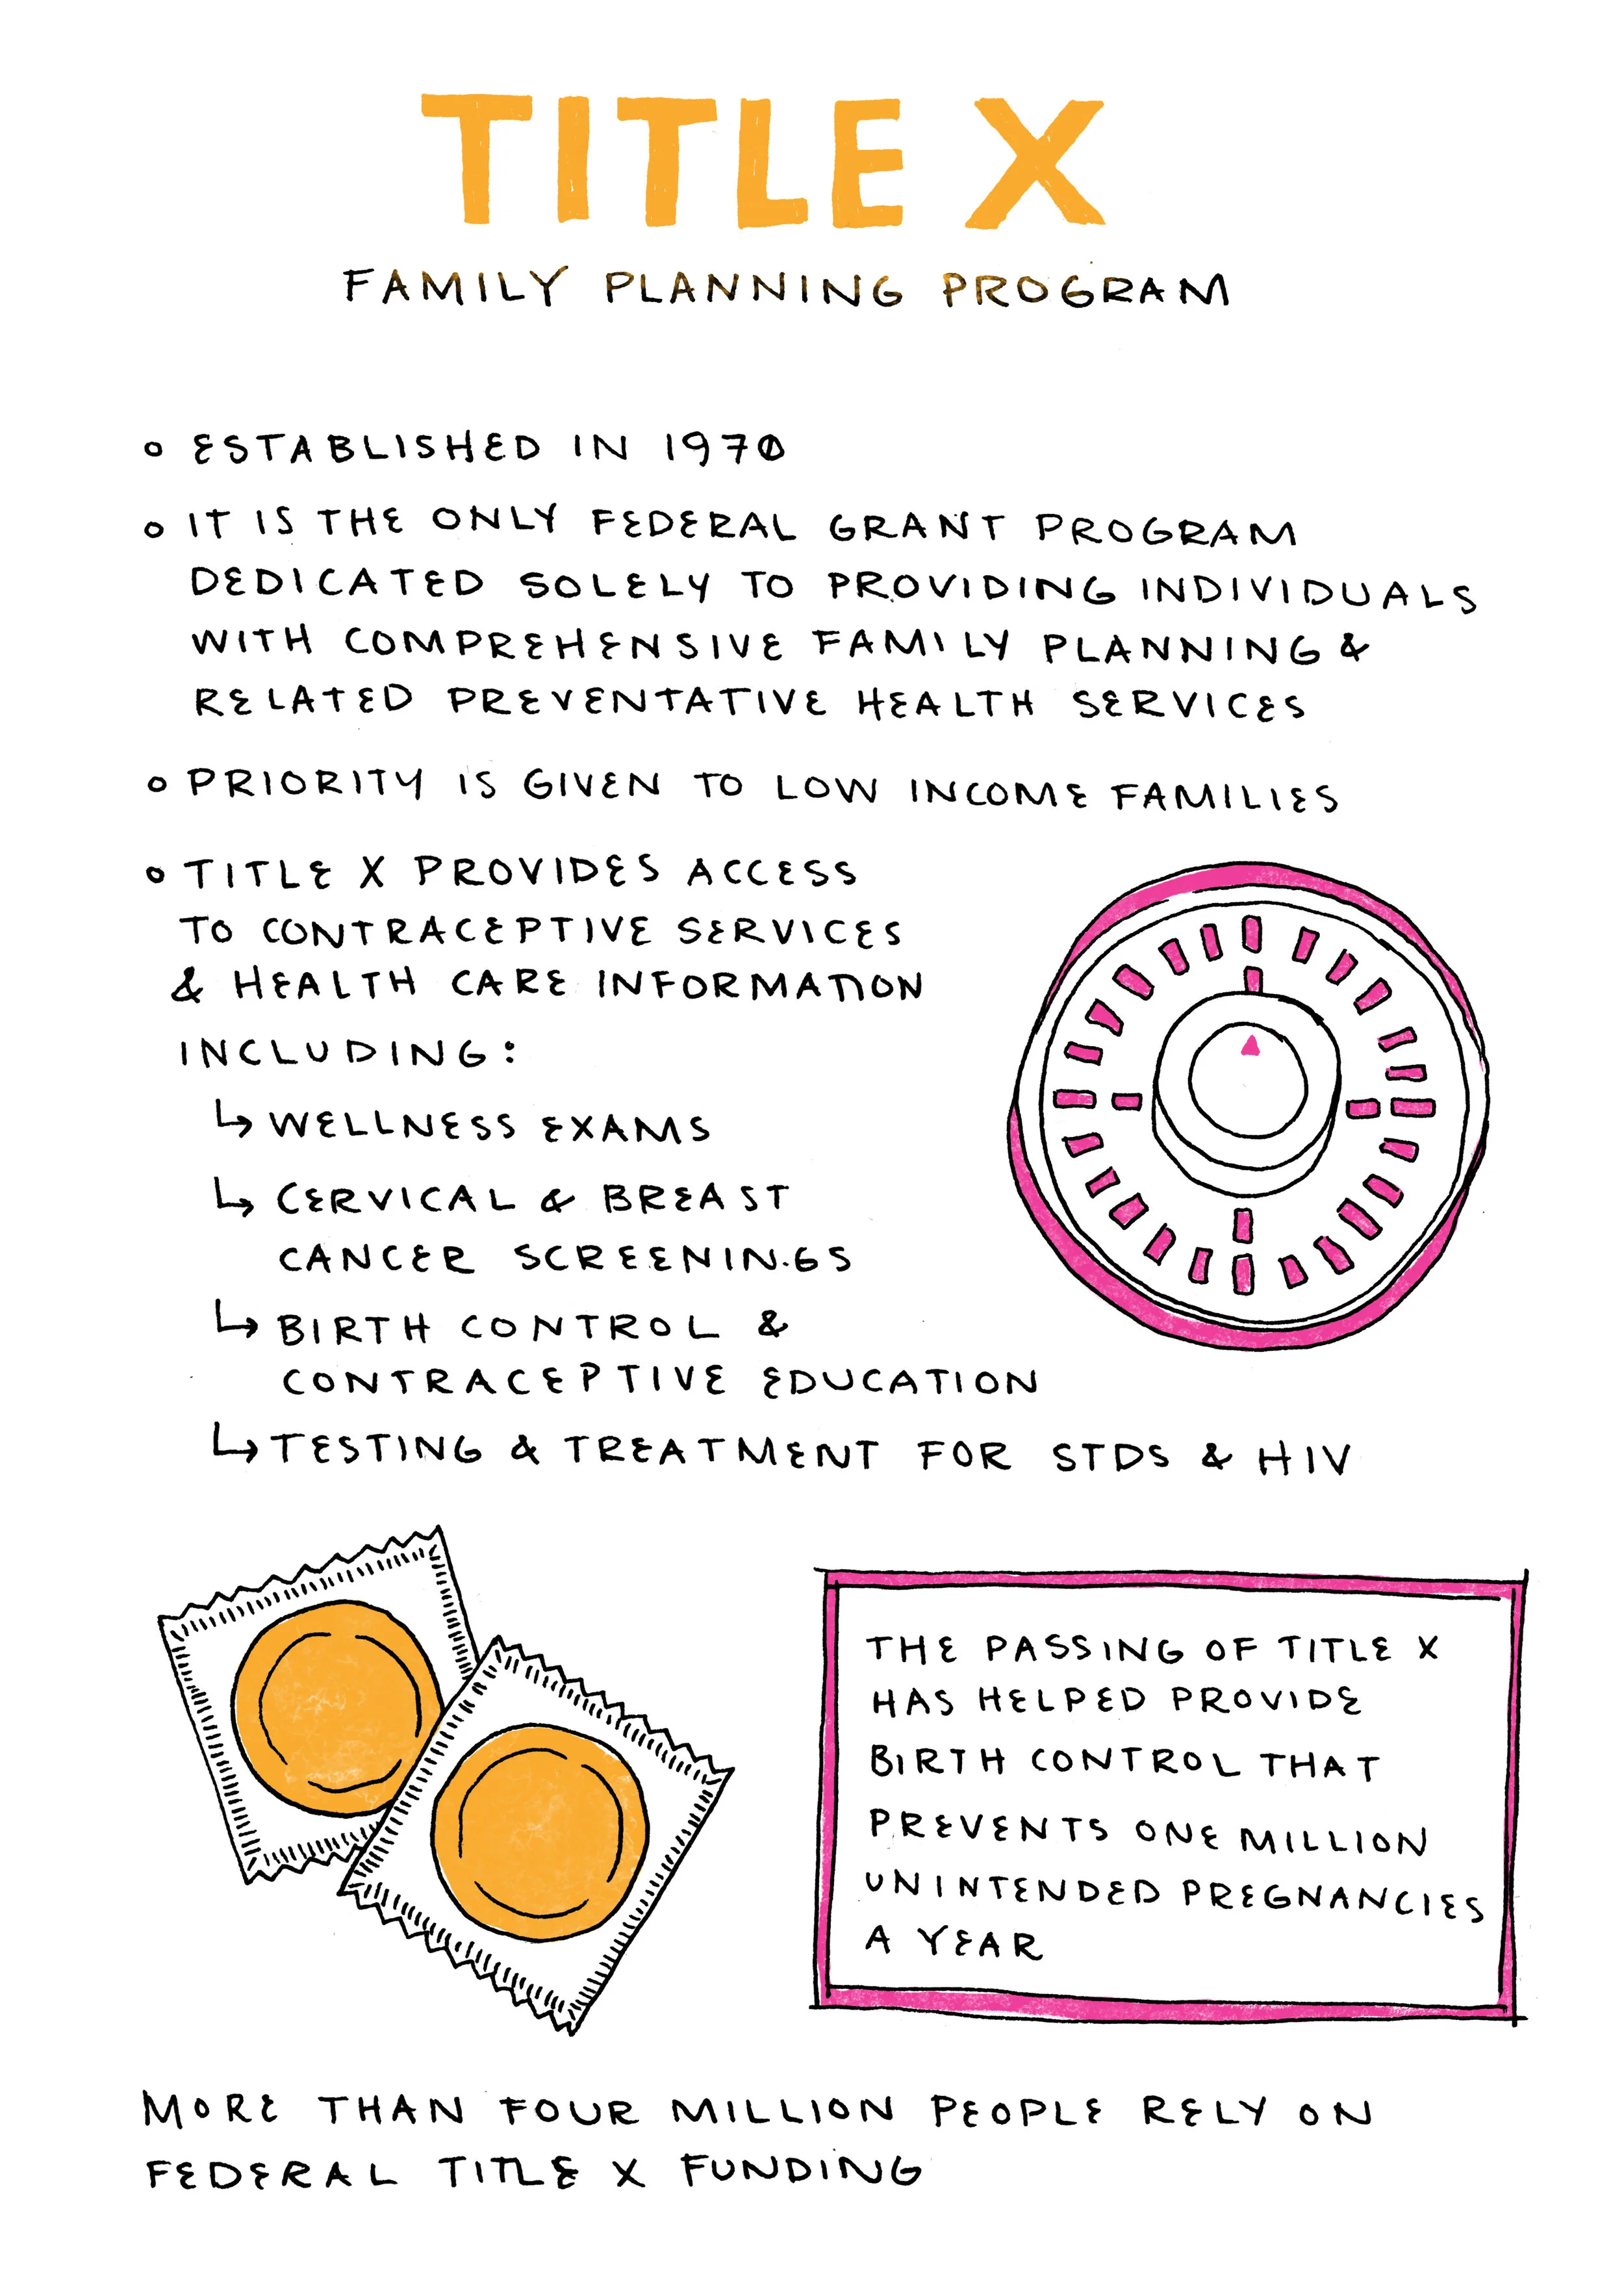 TITLE X
FAMILY PLANNING PROGRAM
◦ ESTABLISHED IN 1970
◦ IT IS THE ONLY FEDERAL GRANT PROGRAM
DEDICATED SOLELY TO PROVIDING INDIVIDUALS
WITH COMPREHENSIVE FAMILY PLANNING &
RELATED PREVENTATIVE HEALTH SERVICES
◦ PRIORITY IS GIVEN TO LOW INCOME FAMILIES
◦ TITLE X PROVIDES ACCESS
TO CONTRACEPTIVE SERVICES
& HEALTH CARE INFORMATION
INCLUDING:
↳ WELLNESS EXAMS
↳ CERVICAL & BREAST
CANCER SCREENINGS
↳ BIRTH CONTROL &
CONTRACEPTIVE EDUCATION
↳ TESTING & TREATMENT FOR STDS & HIV
THE PASSING OF TITLE X
HAS HELPED PROVIDE
BIRTH CONTROL THAT
PREVENTS ONE MILLION
UNINTENDED PREGNANCIES
A YEAR
MORE THAN FOUR MILLION PEOPLE RELY ON
FEDERAL TITLE X FUNDING